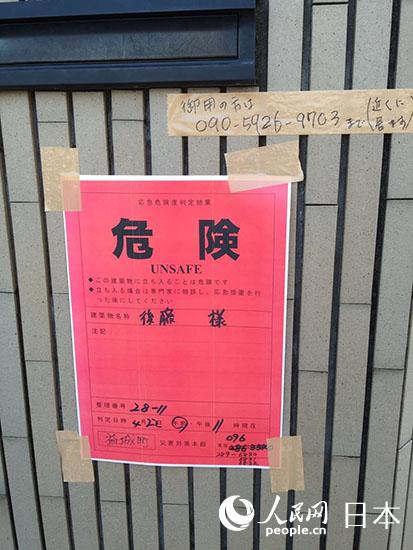 御用の方は
090-5926-9703まで(近くに居ます)
応急危険度判定結果
危険
UNSAFE
◆この建築物に立ち入ることは危険です
◆立ち入る場合は専門家に相談し、応急措置を行った後にしてください
建築物名称 後藤 様
注記:
整理番号 28-11
判定日時 4月2日 午前・午後 11 時現在
災害対策本部 電話 096
人民网 日本
people.cn